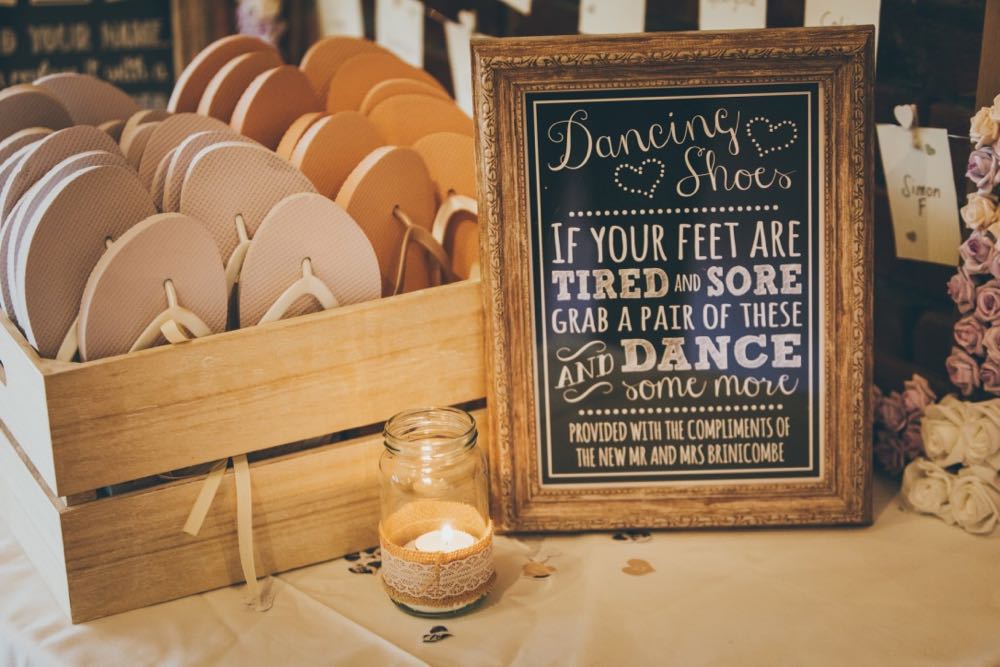 D YOUR NAME
Dancing
Shoes
IF YOUR FEET ARE
TIRED AND SORE
GRAB A PAIR OF THESE
AND DANCE
some more
PROVIDED WITH THE COMPLIMENTS OF
THE NEW MR AND MRS BRINICOMBE
Simon
F